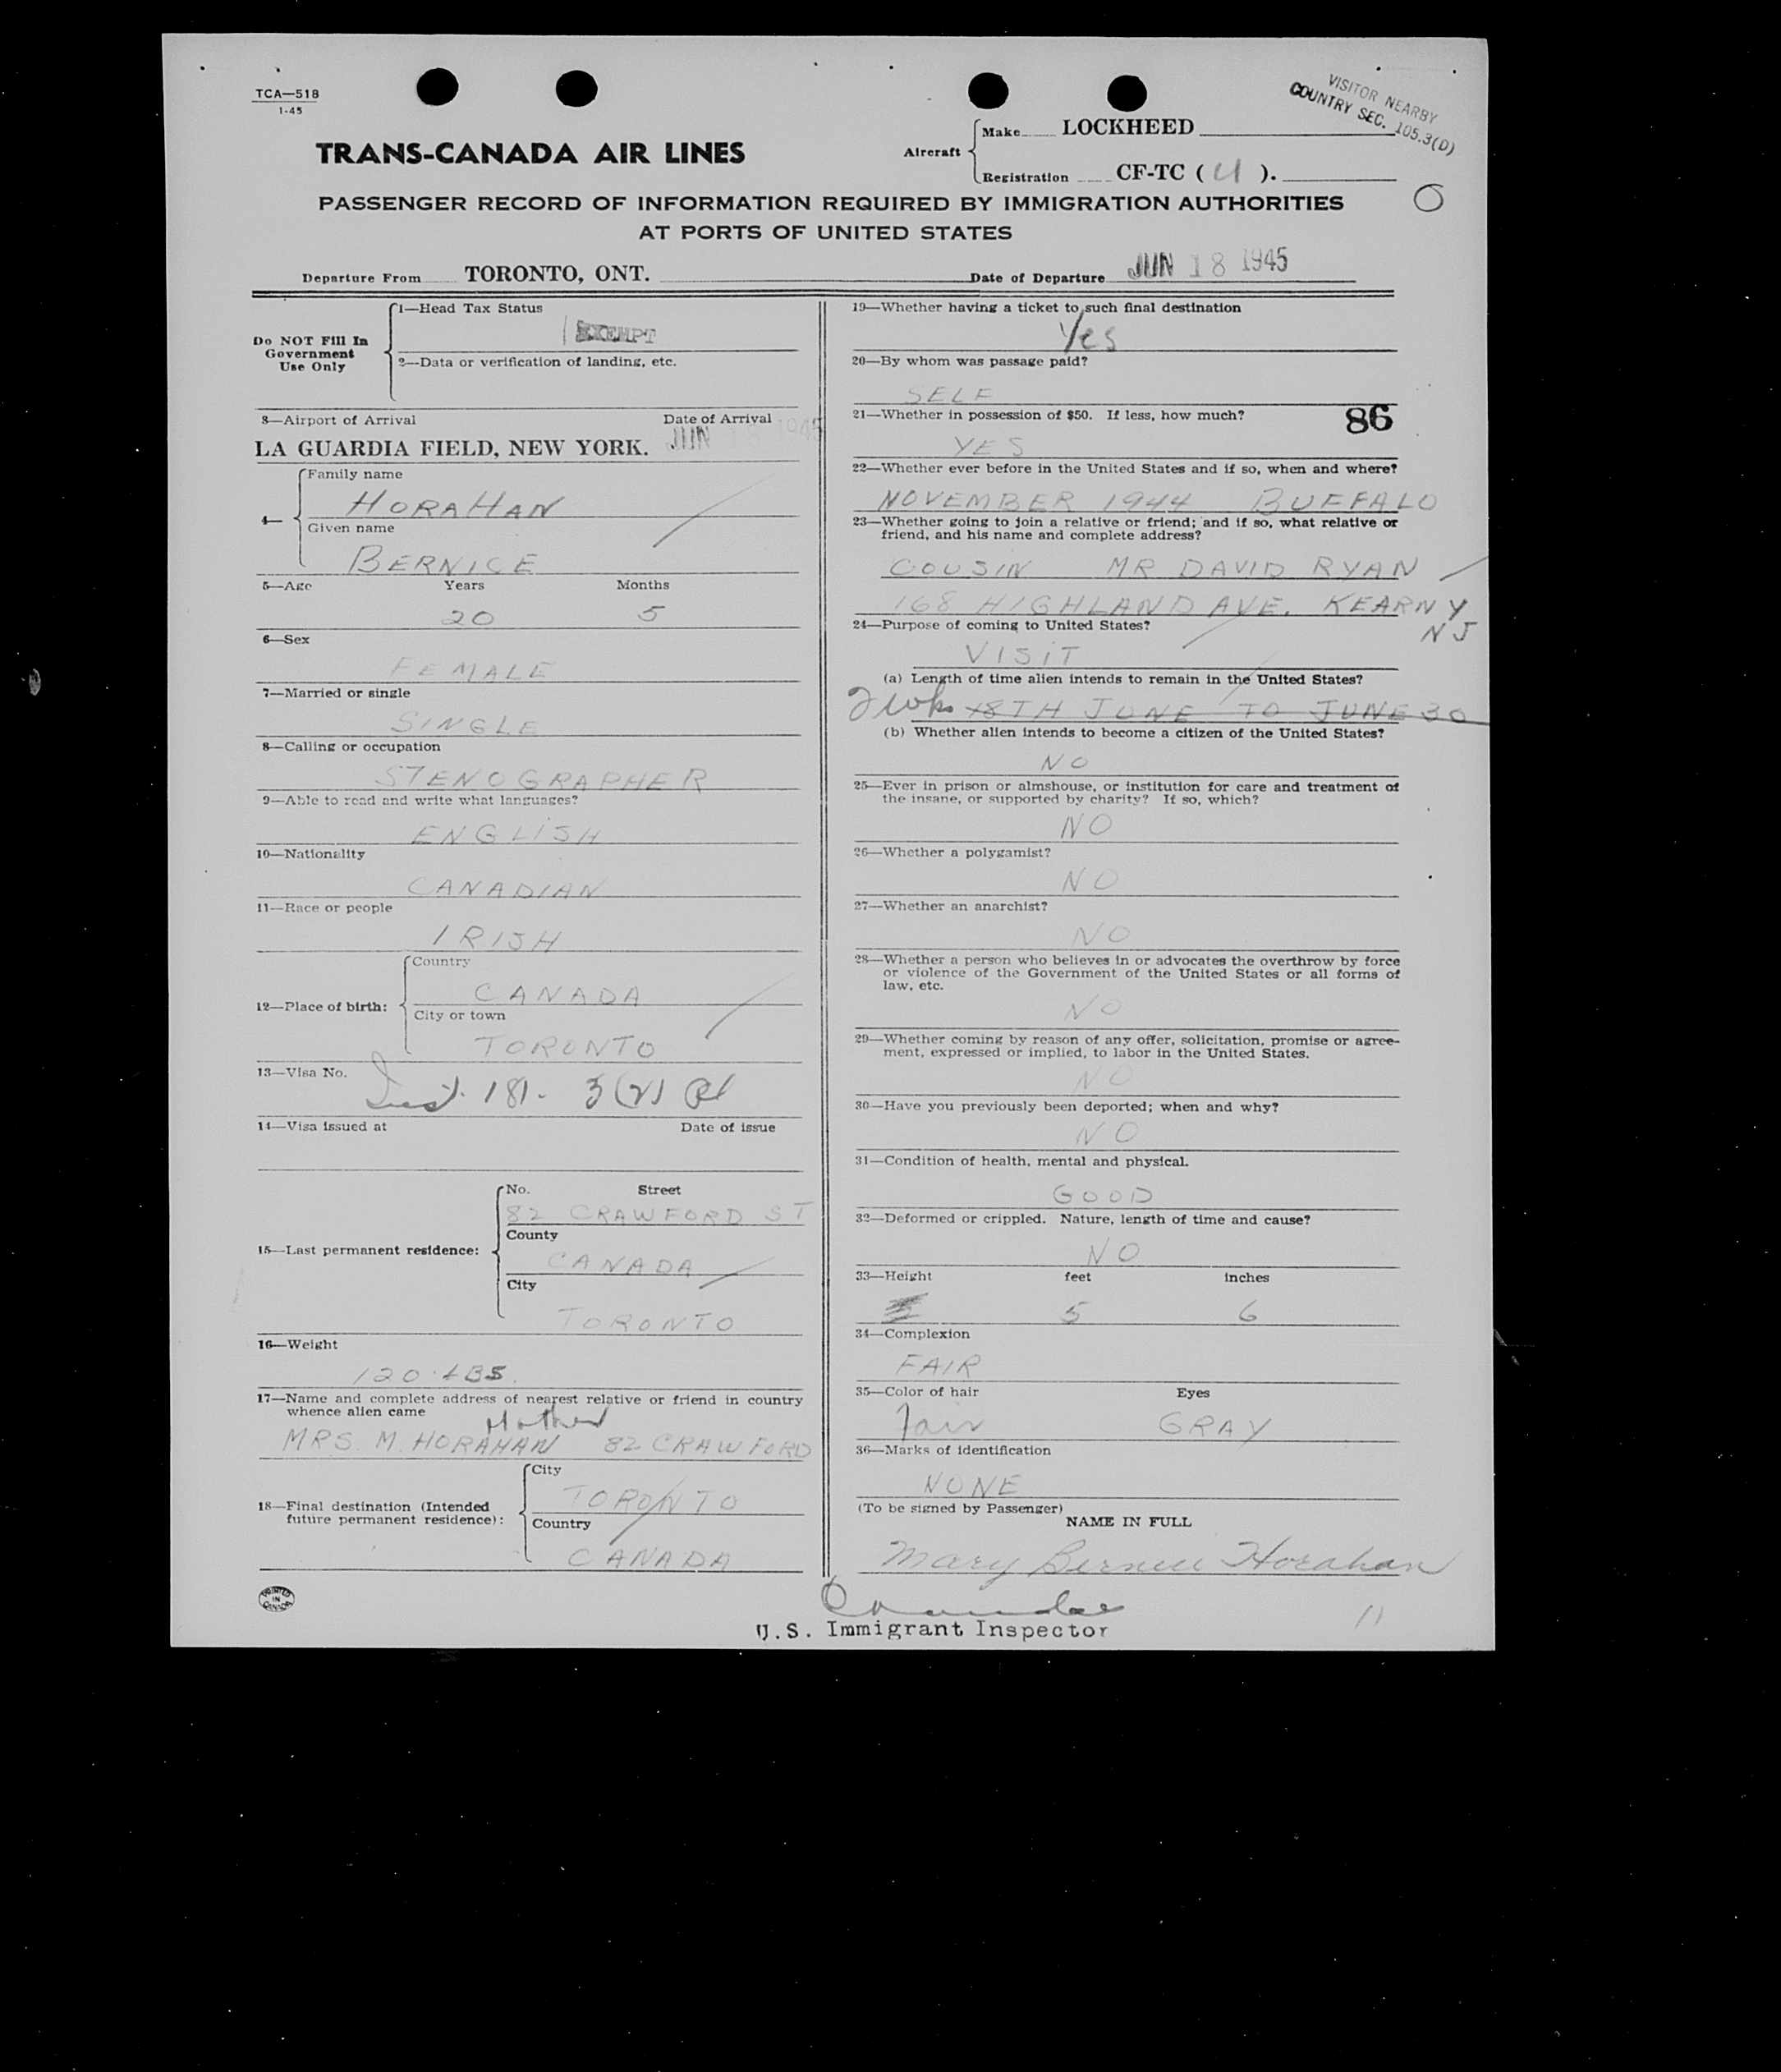 TCA—518
1-45
VISITOR NEARBY
COUNTRY SEC. 105.3(D)
TRANS-CANADA AIR LINES
Aircraft
Make LOCKHEED
Registration CF-TC ( ).
PASSENGER RECORD OF INFORMATION REQUIRED BY IMMIGRATION AUTHORITIES
AT PORTS OF UNITED STATES
Departure From TORONTO, ONT. Date of Departure JUN 18 1945
Do NOT Fill In
Government
Use Only
1—Head Tax Status
EXEMPT
2—Data or verification of landing, etc.
3—Airport of Arrival Date of Arrival
LA GUARDIA FIELD, NEW YORK. JUN 18 1945
4—
Family name
HORAHAN
Given name
BERNICE
5—Age Years Months
20 5
6—Sex
FEMALE
7—Married or single
SINGLE
8—Calling or occupation
STENOGRAPHER
9—Able to read and write what languages?
ENGLISH
10—Nationality
CANADIAN
11—Race or people
IRISH
12—Place of birth:
Country
CANADA
City or town
TORONTO
13—Visa No.
181- 3(2)
14—Visa issued at Date of issue
15—Last permanent residence:
No. Street
82 CRAWFORD ST
County
CANADA
City
TORONTO
16—Weight
120 LBS.
17—Name and complete address of nearest relative or friend in country
whence alien came
Mother
MRS. M. HORAHAN 82 CRAWFORD
18—Final destination (Intended
future permanent residence):
City
TORONTO
Country
CANADA
PRINTED
IN
CANADA
19—Whether having a ticket to such final destination
Yes
20—By whom was passage paid?
SELF
21—Whether in possession of $50. If less, how much? 86
YES
22—Whether ever before in the United States and if so, when and where?
NOVEMBER 1944 BUFFALO
23—Whether going to join a relative or friend; and if so, what relative or
friend, and his name and complete address?
COUSIN MR DAVID RYAN
168 HIGHLAND AVE. KEARNY
NJ
24—Purpose of coming to United States?
VISIT
(a) Length of time alien intends to remain in the United States?
2 wks 18TH JUNE TO JUNE 30
(b) Whether alien intends to become a citizen of the United States?
NO
25—Ever in prison or almshouse, or institution for care and treatment of
the insane, or supported by charity? If so, which?
NO
26—Whether a polygamist?
NO
27—Whether an anarchist?
NO
28—Whether a person who believes in or advocates the overthrow by force
or violence of the Government of the United States or all forms of
law, etc.
NO
29—Whether coming by reason of any offer, solicitation, promise or agree-
ment, expressed or implied, to labor in the United States.
NO
30—Have you previously been deported; when and why?
NO
31—Condition of health, mental and physical.
GOOD
32—Deformed or crippled. Nature, length of time and cause?
NO
33—Height feet inches
5 6
34—Complexion
FAIR
35—Color of hair Eyes
Fair GRAY
36—Marks of identification
NONE
(To be signed by Passenger)
NAME IN FULL
Mary Bernice Horahan
U.S. Immigrant Inspector
11